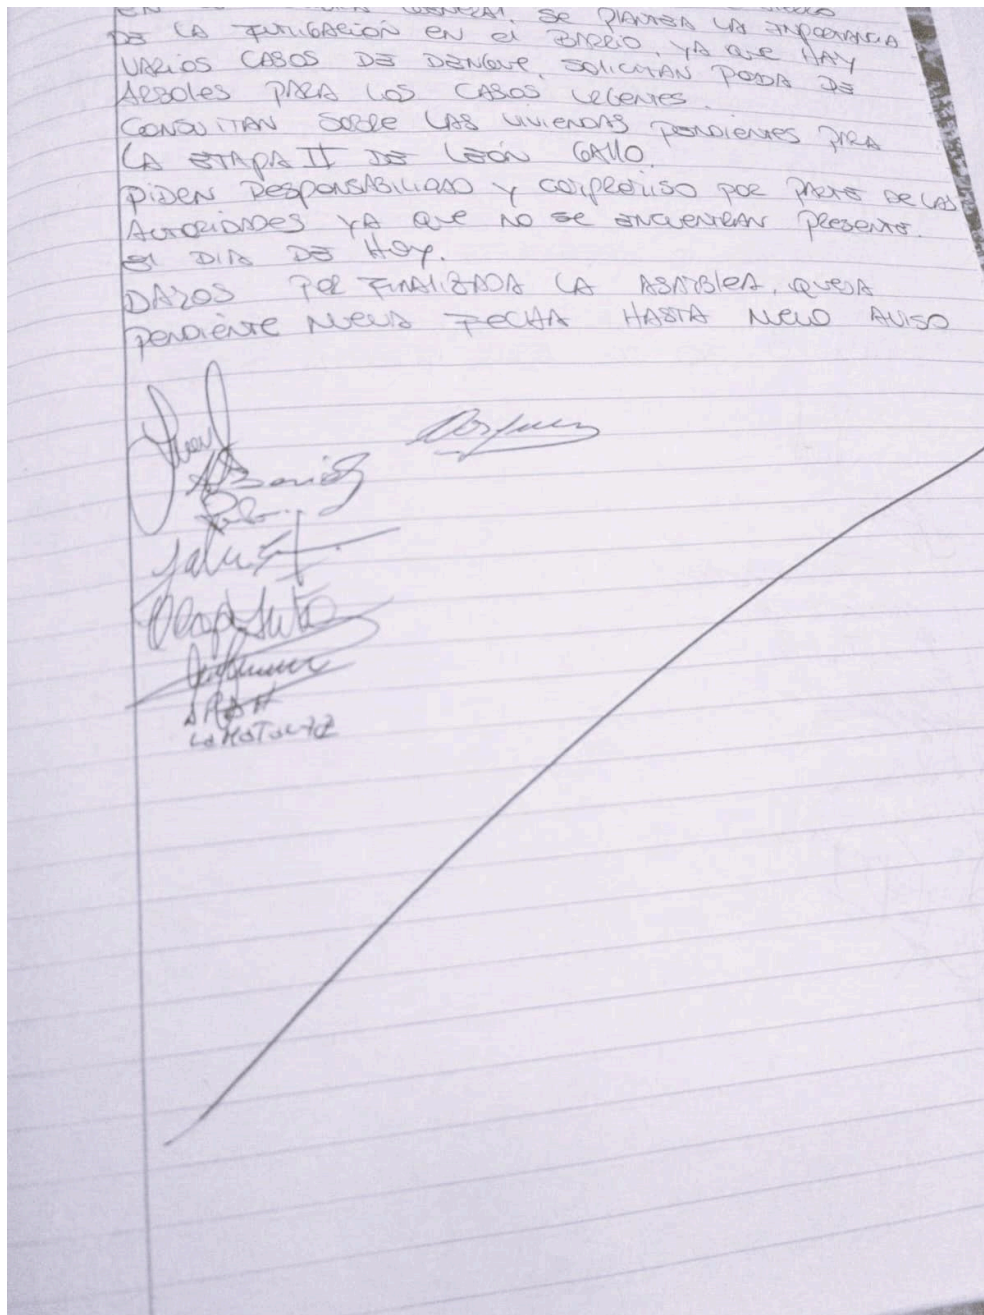 GENERAL, SE PLANTEA LA IMPORTANCIA
DE LA FUMIGACIÓN EN el BARRIO, YA QUE HAY
VARIOS CASOS DE DENGUE, SOLICITAN PODA DE
ARBOLES PARA LOS CASOS URGENTES.
CONSULTAN SOBRE LAS VIVIENDAS PENDIENTES PARA
LA ETAPA II DE LEÓN GALLO.
PIDEN RESPONSABILIDAD Y COMPROMISO POR PARTE DE LAS
AUTORIDADES YA QUE NO SE ENCUENTRAN PRESENTE.
El DIA DE HOY.
DAMOS POR FINALIZADA LA ASAMBLEA, QUEDA
PENDIENTE NUEVA FECHA HASTA NUEVO AVISO